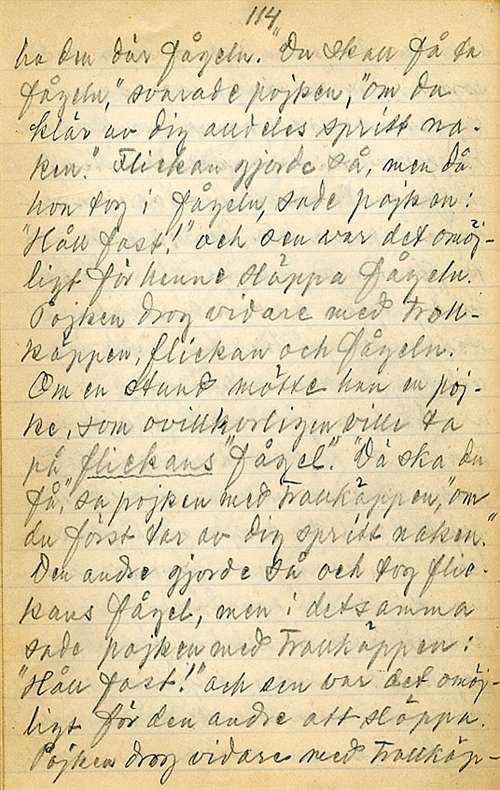 114
ha den där fågeln." "Du skall få ta
fågeln," svarade pojken, "om du
klär av dig alldeles spritt na-
ken." Flickan gjorde så, men då
hon tog i fågeln, sade pojken:
"Håll fast!" och sen var det omöj-
ligt för henne släppa fågeln.
Pojken drog vidare med troll-
käppen, flickan och fågeln.
Om en stund mötte han en poj-
ke, som ovillkorligen ville ta
på flickans "fågel". "Då ska du
få," sa pojken med trollkäppen, "om
du först tar av dig spritt naken."
Den andre gjorde så och tog flic-
kans fågel, men i detsamma
sade pojken med trollkäppen:
"Håll fast!" och sen var det omöj-
ligt för den andre att släppa.
Pojken drog vidare med trollkäp-